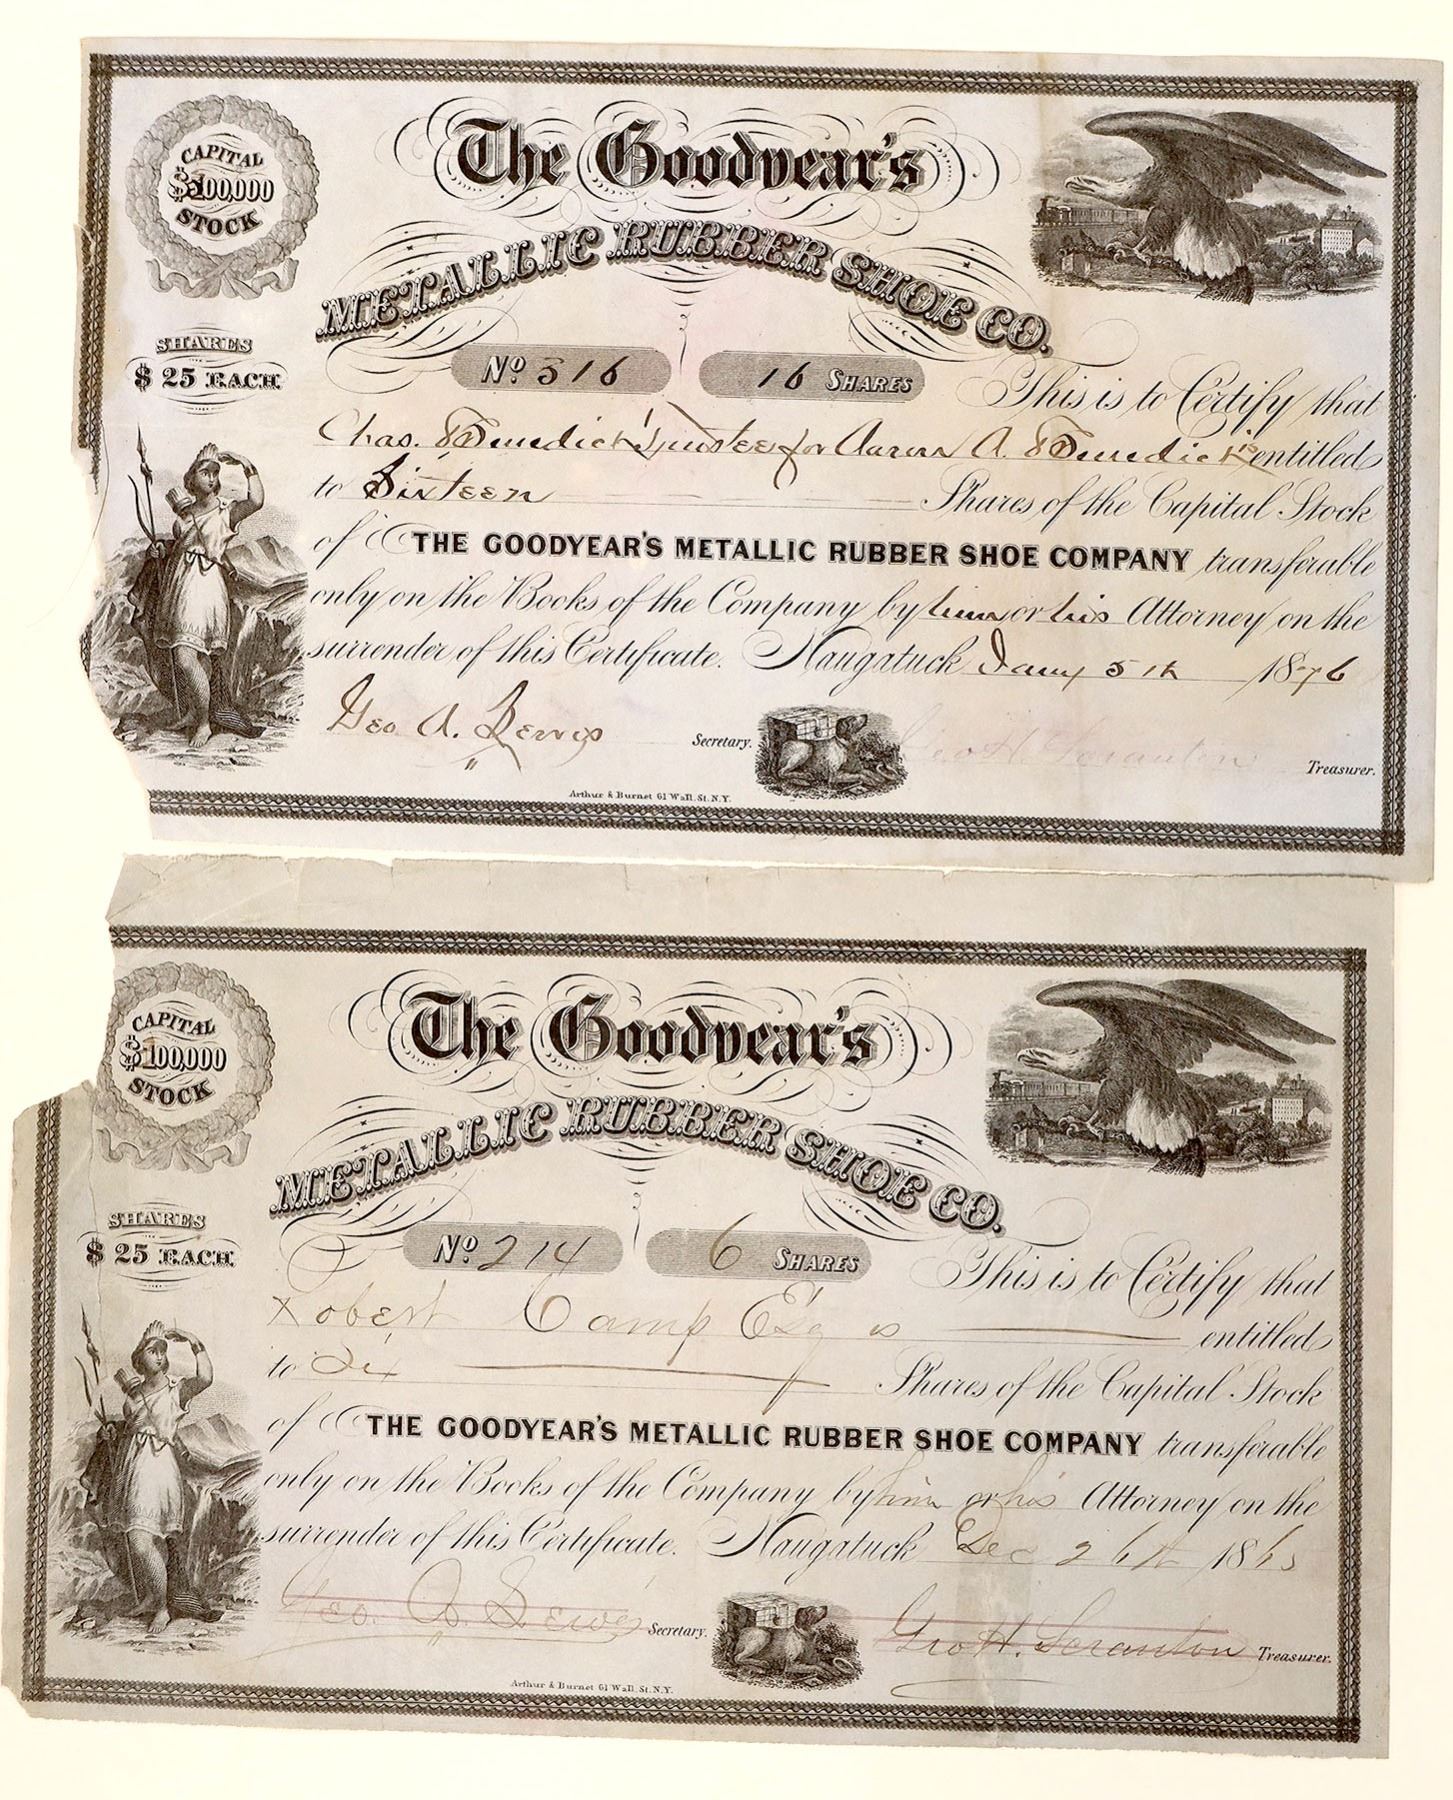 CAPITAL
$100,000
STOCK
The Goodyear's
METALLIC RUBBER SHOE CO.
SHARES
$ 25 EACH.
No. 316
16 SHARES
This is to Certify that
Chas. Benedict Trustee for Aaron A. Benedict is entitled
to Sixteen Shares of the Capital Stock
of THE GOODYEAR'S METALLIC RUBBER SHOE COMPANY transferable
only on the Books of the Company by him or his Attorney on the
surrender of this Certificate. Naugatuck Jany 5th 1876
Geo A. Lewis Secretary. Geo H. Scranton Treasurer.
Arthur & Burnet 61 Wall. St. N.Y.
CAPITAL
$100,000
STOCK
The Goodyear's
METALLIC RUBBER SHOE CO.
SHARES
$ 25 EACH.
No. 214
6 SHARES
This is to Certify that
Robert Camp Esq is entitled
to Six Shares of the Capital Stock
of THE GOODYEAR'S METALLIC RUBBER SHOE COMPANY transferable
only on the Books of the Company by him or his Attorney on the
surrender of this Certificate. Naugatuck Dec 26th
Geo. A. Lewis Secretary. Geo H. Scranton Treasurer.
Arthur & Burnet 61 Wall. St. N.Y.